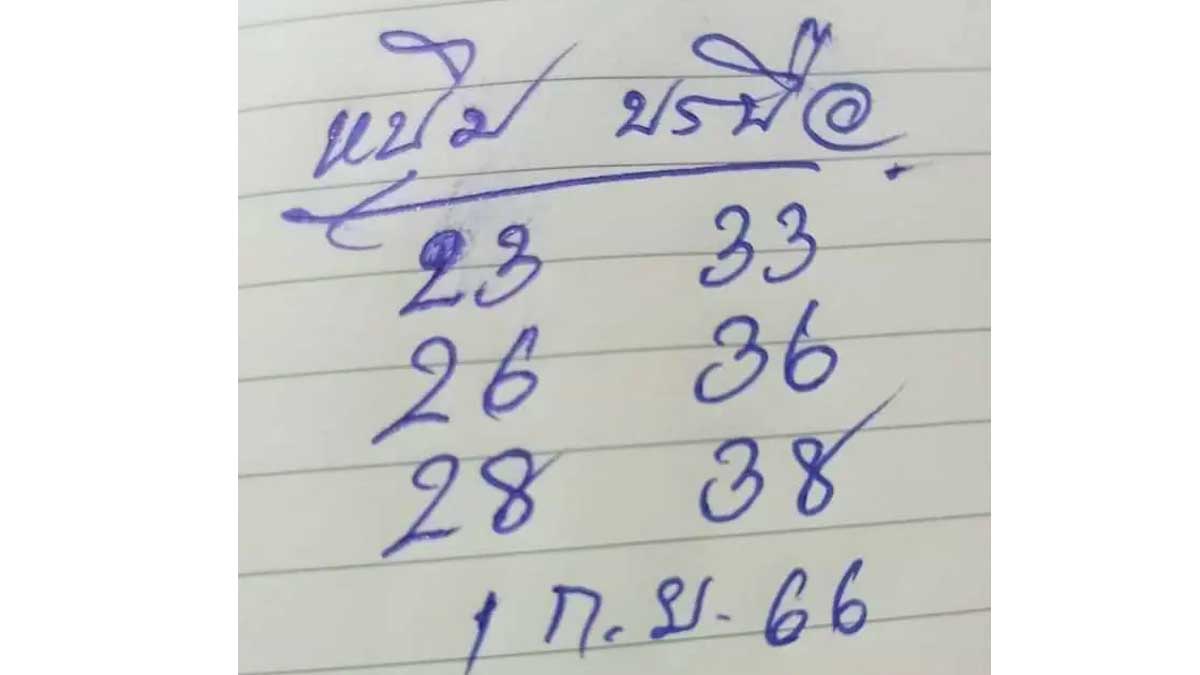 หนุ่ม บรบือ
23 33
26 36
28 38
1 ก.ย. 66